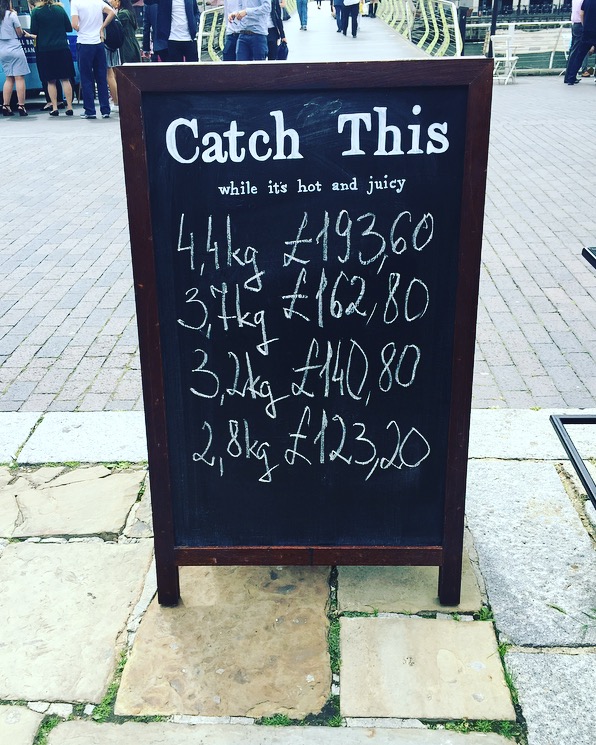 Catch This
while it's hot and juicy
4,4kg £193,60
3,7kg £162,80
3,2kg £140,80
2,8kg £123,20